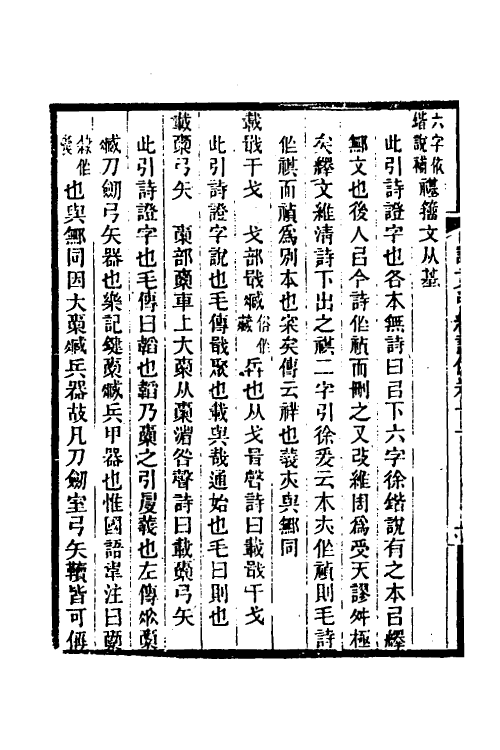 六字依鍇說補禥籒文从基
此引詩證字也各本無詩曰㠯下六字徐鍇說有之本㠯釋
𨞪文也後人㠯今詩作禎而刪之又改維周爲受天謬舛極
矣繹文維淸詩下出之祺二字引徐爰云本夾作禎則毛詩
作祺而禎爲別本也案矣傳云祥也義夾與𨞪同
載戢干戈　戈部戢臧俗作藏兵也从戈咠聲詩曰載戢干戈
此引詩證字說也毛傳戢聚也載與哉通始也毛曰則也
載櫜弓矢　櫜部櫜車上大櫜从櫜渻咎聲詩曰載櫜弓矢
此引詩證字也毛傳曰韜也韜乃櫜之引厦義也左傳
臧刀劒弓矢器也樂記鍵櫜臧兵甲器也惟國語韋注曰櫜
也與𨞪同因大櫜臧兵器故凡刀劒室弓矢韇皆可偁